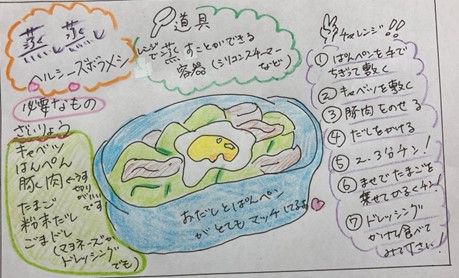 蒸し蒸し
ヘルシーズボラメシ
必要なもの
ざいりょう
キャベツ
はんぺん
豚肉(うす
切りがいい
です)
たまご
粉末だし
ごまドレ
(マヨネーズか
ドレッシング
でも)
道具
レンジで蒸すことができる
容器(シリコンスチーマー
など)
おだしとはんぺん
がとてもマッチしてるよ
チャレンジ!!
①はんぺんを手で
ちぎって敷く
②キャベツを敷く
③豚肉をのせる
④だしをかける
⑤2-3分チン!
⑥まぜてたまごを
乗せてかるくチン!
⑦ドレッシング
かけて食べて
みて下さい!